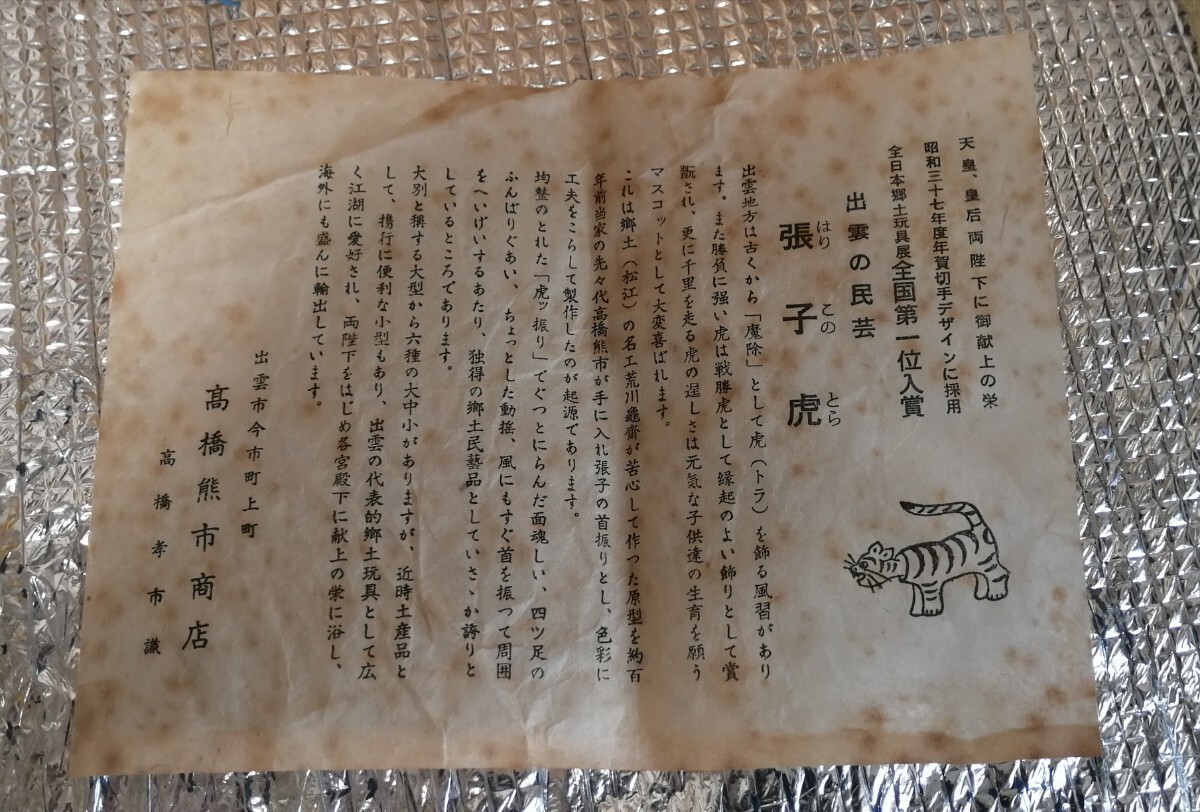 天皇、皇后両陛下に御献上の栄
昭和三十七年度年賀切手デザインに採用
全日本郷土玩具展全国第一位入賞
出雲の民芸
張子虎
はり この とら
出雲地方は古くから「魔除」として虎（トラ）を飾る風習があり
ます。また勝負に強い虎は戦勝虎として縁起のよい飾りとして賞
翫され、更に千里を走る虎の逞しさは元気な子供達の生育を願う
マスコットとして大変喜ばれます。
これは郷土（松江）の名工荒川龜齋が苦心して作った原型を約百
年前当家の先々代高橋熊市が手に入れ張子の首振りとし、色彩に
工夫をこらして製作したのが起源であります。
均整のとれた「虎ッ振り」でぐっとにらんだ面魂しい、四ツ足の
ふんばりぐあい、ちょっとした動揺、風にもすぐ首を振って周囲
をへいげいするあたり、独得の郷土民藝品としていさゝか誇りと
しているところであります。
大別と稱する大型から六種の大中小がありますが、近時土産品と
して、携行に便利な小型もあり、出雲の代表的郷土玩具として広
く江湖に愛好され、両陛下をはじめ各宮殿下に献上の栄に浴し、
海外にも盛んに輸出しています。
出雲市今市町上町
髙橋熊市商店
高橋孝市識